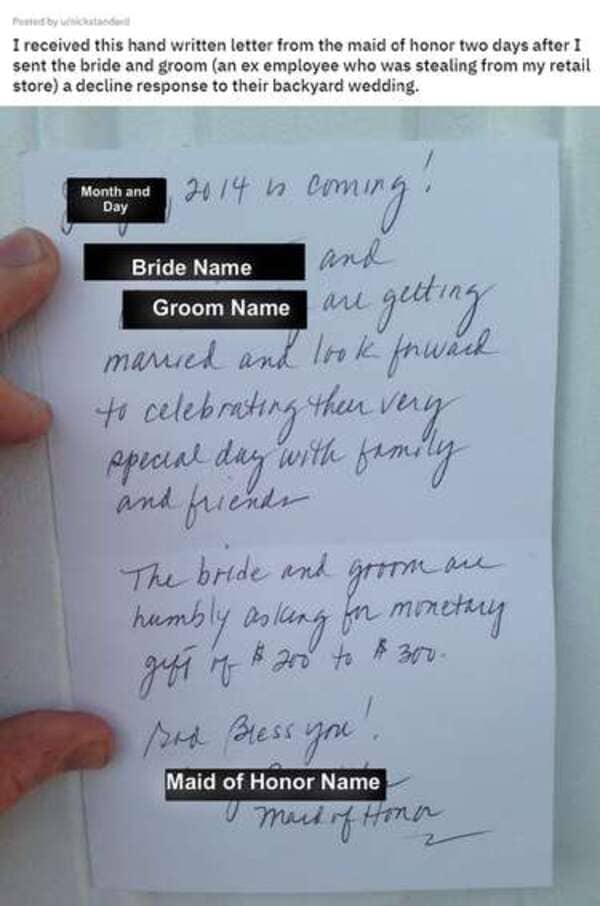 Posted by u/nickstandard
I received this hand written letter from the maid of honor two days after I
sent the bride and groom (an ex employee who was stealing from my retail
store) a decline response to their backyard wedding.
Month and
Day
, 2014 is coming!
Bride Name and
Groom Name are getting
married and look forward
to celebrating their very
special day with family
and friends
The bride and groom are
humbly asking for monetary
gift of $200 to $300.
God Bless you!
Maid of Honor Name
Maid of Honor